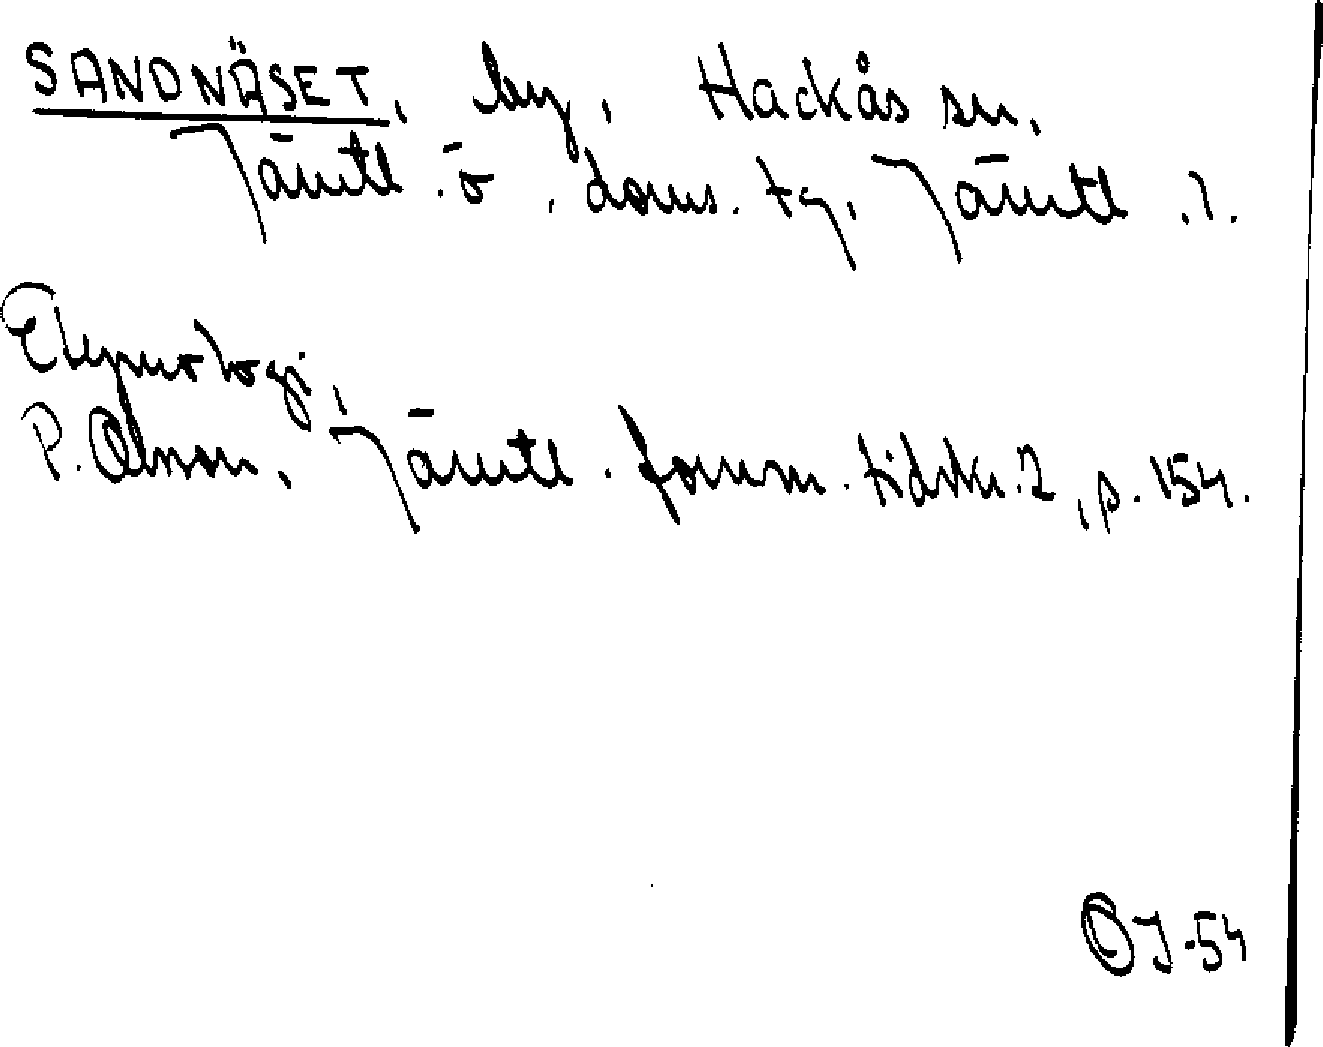 SANDNÄSET, by, Hackås sn,
Jämtl. ö. doms. tg, Jämtl. l.
Etymologi,
P. Olsson, Jämtl. fornm. tidskr. 2, p. 154.
OJ-54